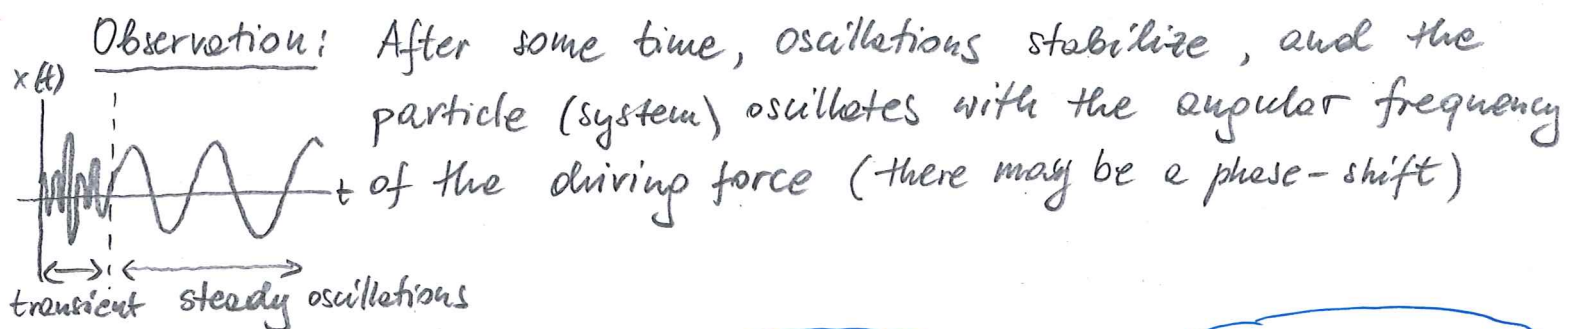 Observation: After some time, oscillations stabilize, and the
x(t)
particle (system) oscillates with the angular frequency
t
of the driving force (there may be a phase-shift)
transient steady oscillations